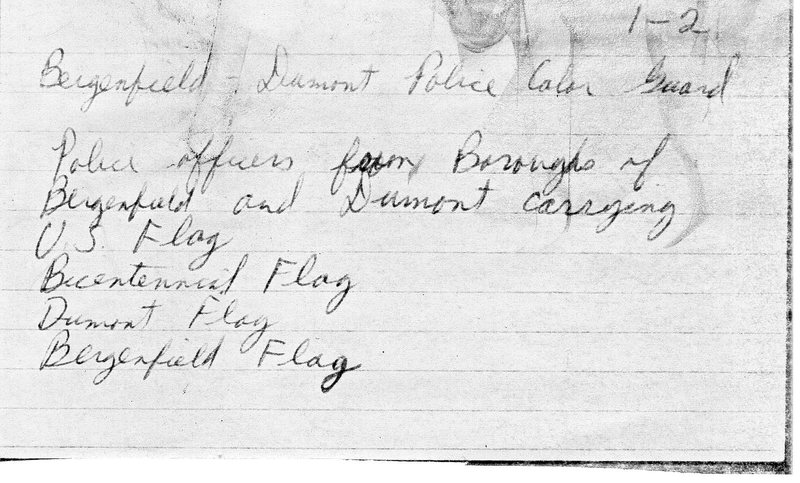 1-2
Bergenfield - Dumont Police Color Guard
Police officers from Boroughs of
Bergenfield and Dumont carrying
U.S. Flag
Bicentennial Flag
Dumont Flag
Bergenfield Flag